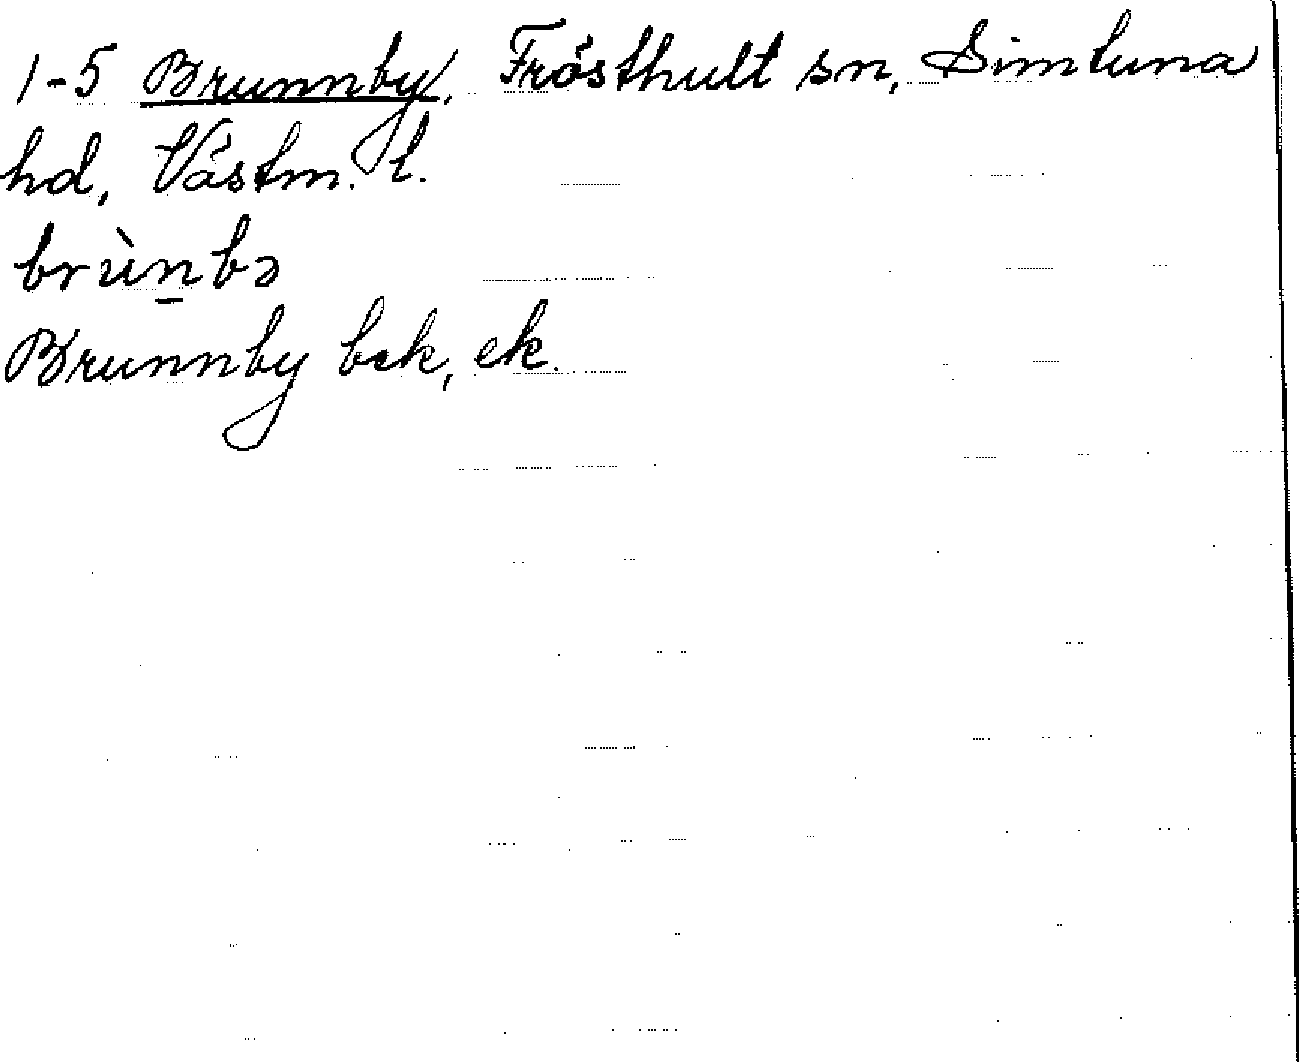 1-5 Brunnby, Frösthult sn, Simtuna
hd, Västm. l.
brùn̲bə
Brunnby bek, ek.